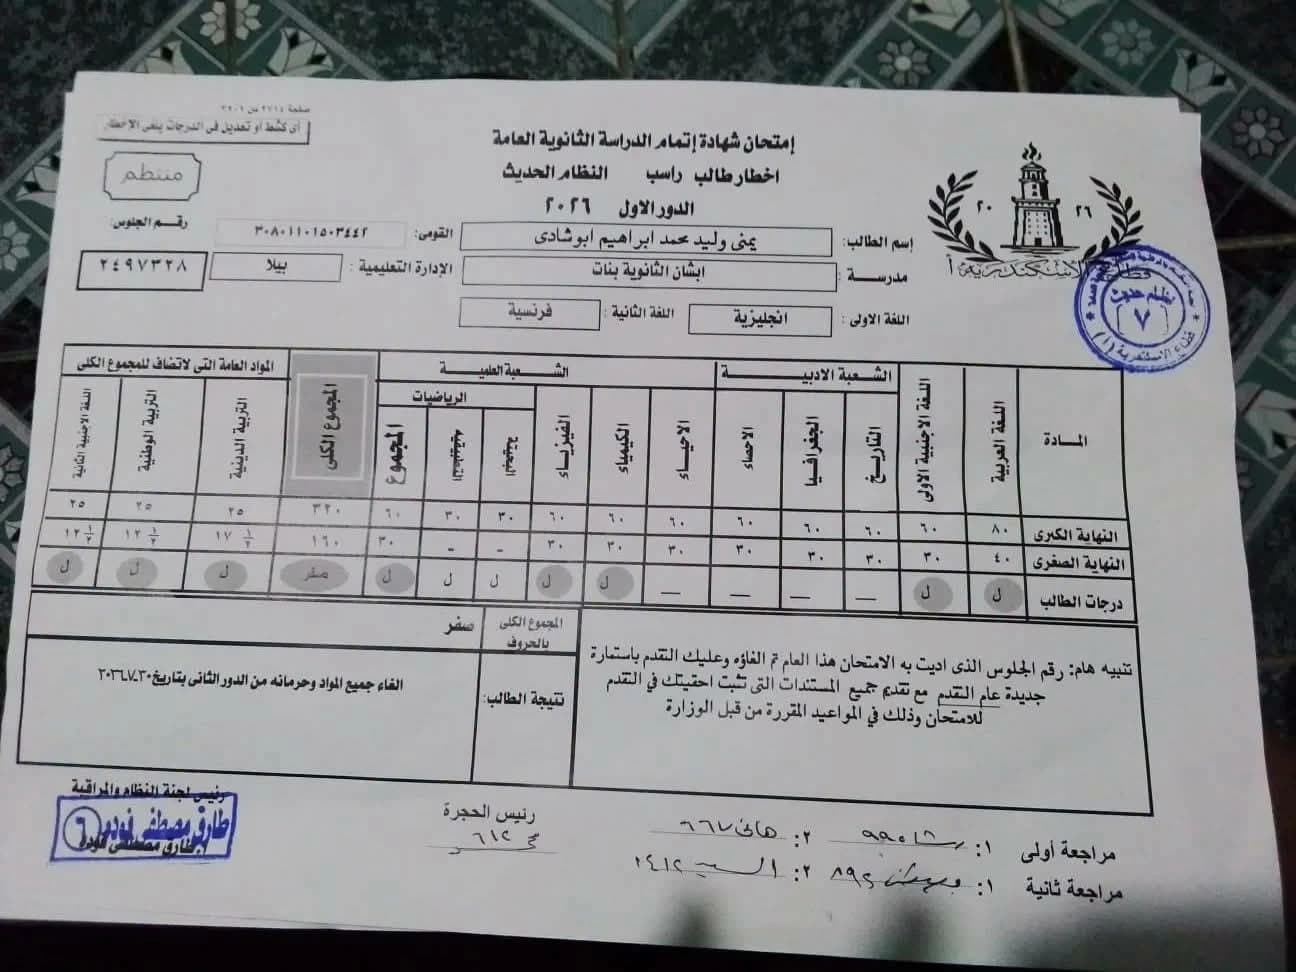 صفحة ٢٧١٤ من ٣٢٠٦
أى كشط أو تعديل فى الدرجات يلغى الاخطار
منتظم
إمتحان شهادة إتمام الدراسة الثانوية العامة
اخطار طالب راسب النظام الحديث
الدور الاول ٢٠٢٦
٢٠ ٢٦
قطاع الاسكندرية أ
نظام حديث
٧
قطاع الاسكندرية (أ)
إسم الطالب: يمنى وليد محمد ابراهيم ابوشادى القومى: ٣٠٨٠١١٠١٥٠٣٤٤٢ رقم الجلوس:
مدرسة: ابشان الثانوية بنات الإدارة التعليمية: بيلا ٢٤٩٧٣٢٨
اللغة الاولى: انجليزية اللغة الثانية: فرنسية
المادة اللغة العربية اللغة الاجنبية الاولى الشعبة الادبية الشعبة العلمية المجموع الكلى المواد العامة التى لاتضاف للمجموع الكلى
التاريخ الجغرافيا الاحصاء الاحياء الكيمياء الفيزياء الرياضيات المجموع التربية الدينية التربية الوطنية اللغة الاجنبية الثانية
النهاية الكبرى ٨٠ ٦٠ ٦٠ ٦٠ ٦٠ ٦٠ ٦٠ ٦٠ ٣٠ ٣٠ ٦٠ ٣٢٠ ٢٥ ٢٥ ٢٥
النهاية الصغرى ٤٠ ٣٠ ٣٠ ٣٠ ٣٠ ٣٠ ٣٠ ٣٠ - - ٣٠ ١٦٠ ١٧ ١/٢ ١٢ ١/٢ ١٢ ١/٢
درجات الطالب ل ل — — — — ل ل ل ل ل صفر ل ل ل
المجموع الكلى بالحروف صفر
تنبيه هام: رقم الجلوس الذى اديت به الامتحان هذا العام تم الغاؤه وعليك التقدم باستمارة
جديدة عام التقدم مع تقديم جميع المستندات التى تثبت احقيتك في التقدم
للامتحان وذلك في المواعيد المقررة من قبل الوزارة
نتيجة الطالب: الغاء جميع المواد وحرمانه من الدور الثانى بتاريخ ٢٠٢٦.٧.٣٠
مراجعة أولى ١: ٢: هانى ٦٦٧
مراجعة ثانية ١: ٨٩٢ ٢: السيد ٢٤١٢
رئيس الحجرة
٦١٢
رئيس لجنة النظام والمراقبة
طارق مصطفى فوده ٦
طارق مصطفى فودة